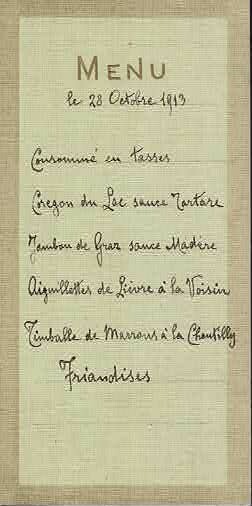 MENU
le 28 Octobre 1913
Consommé en tasses
Coregon du Lac sauce Tartare
Jambon de Graz sauce Madère
Aiguillettes de Lièvre à la Voisin
Timballe de Marrons à la Chantilly
Friandises